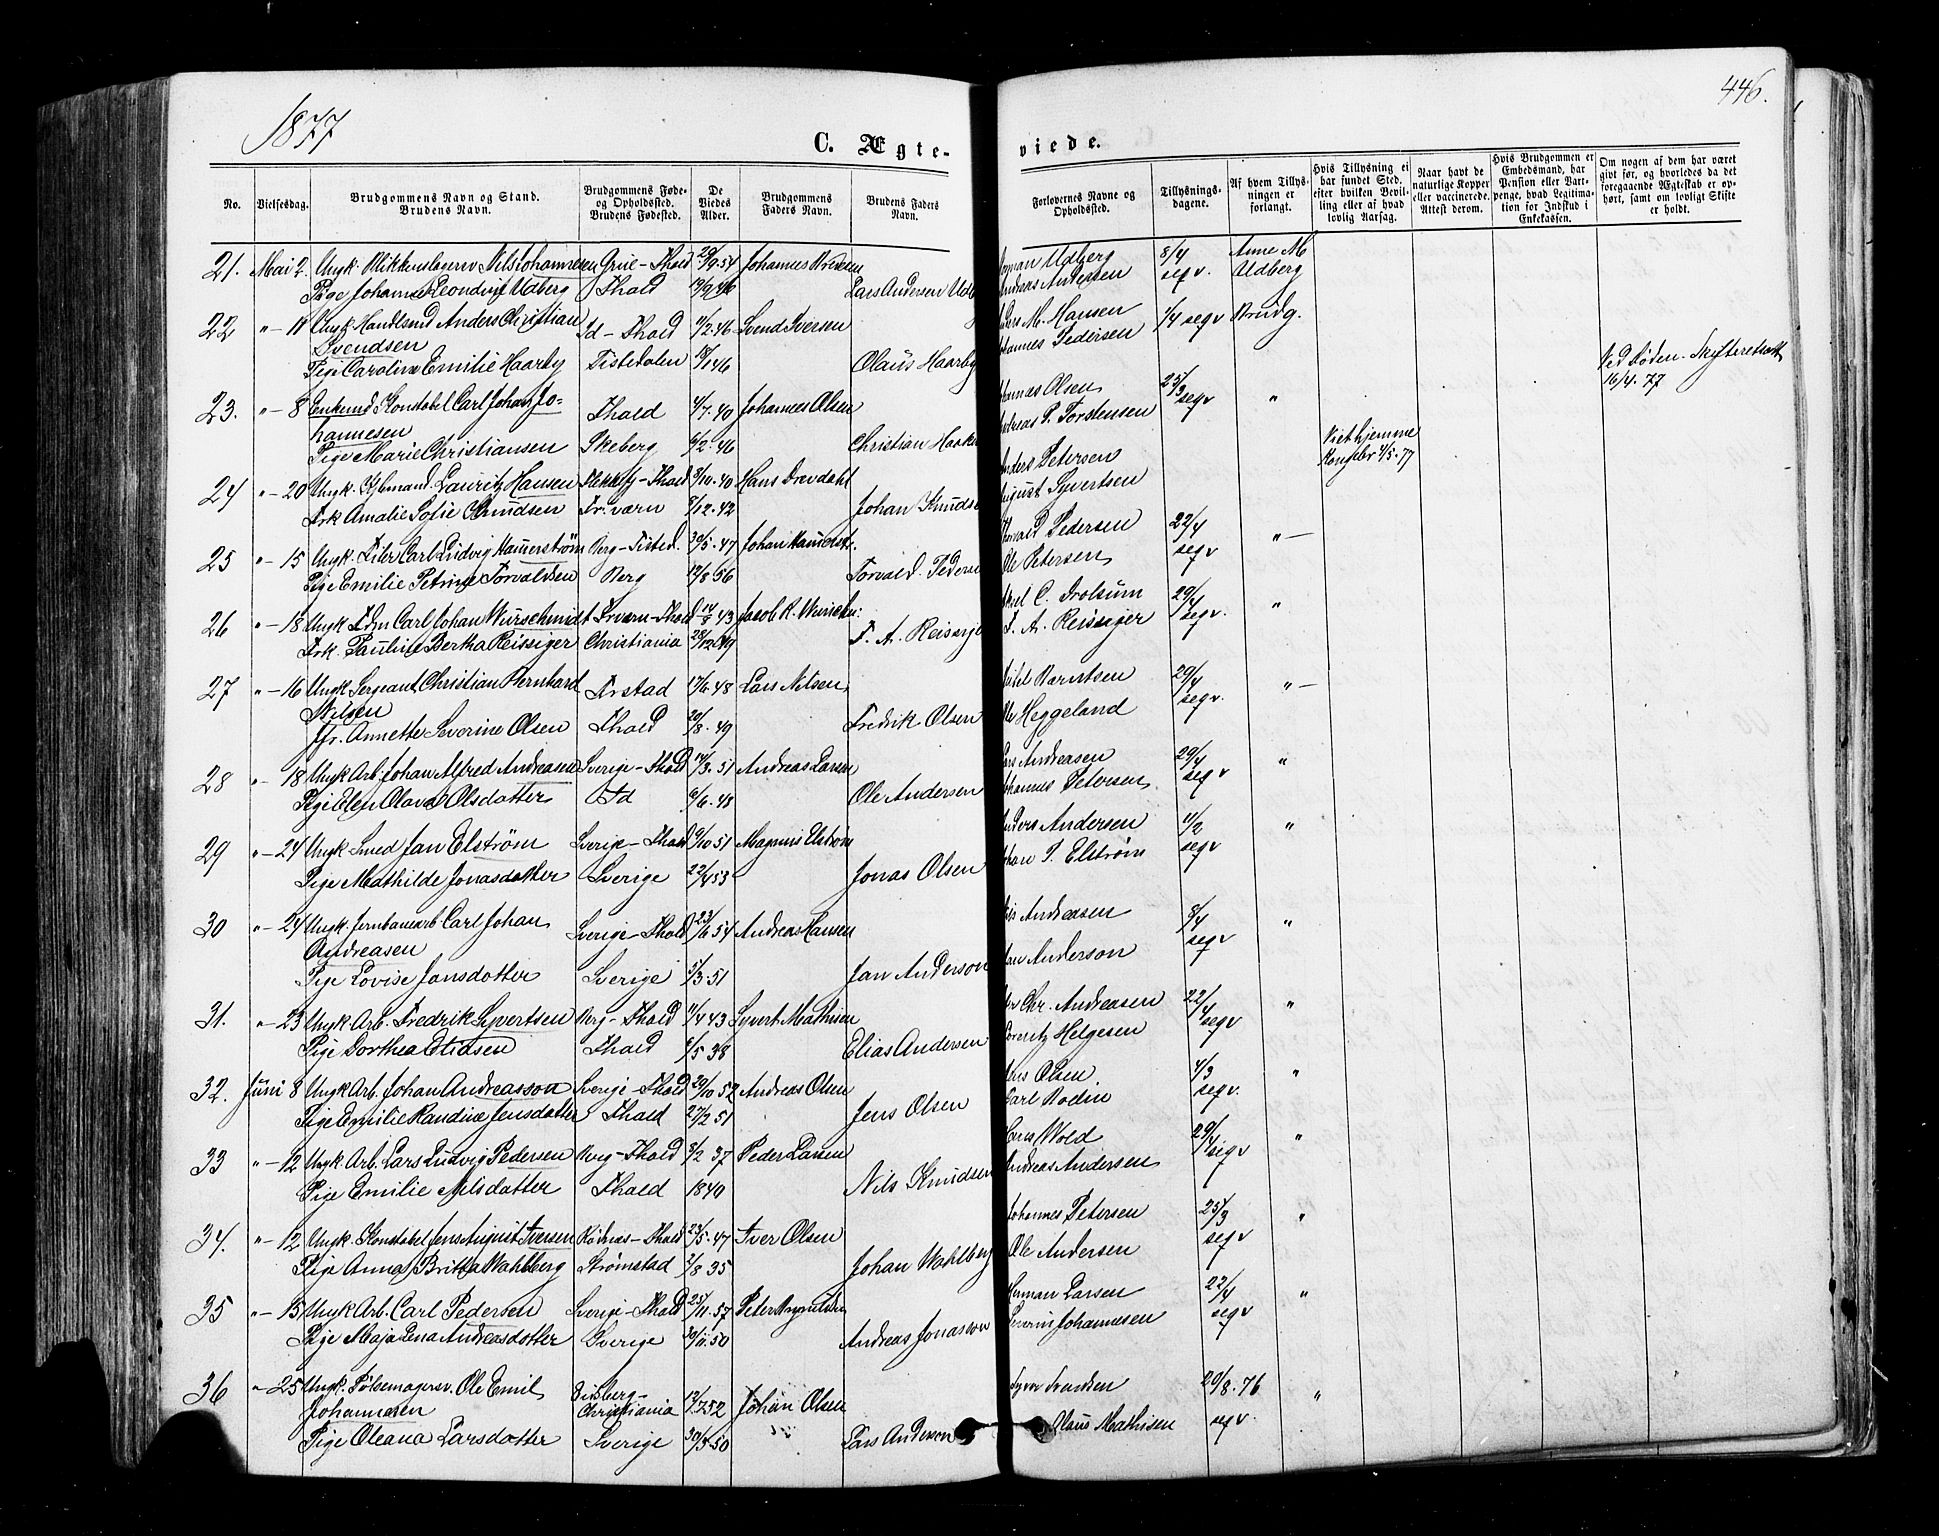 1877
446.
C. Ægte-
viede.
No.
Vielsesdag.
Brudgommens Navn og Stand.
Brudens Navn.
Brudgommens Føde-
og Opholdssted.
Brudens Fødested.
De
Viedes
Alder.
Brudgommens
Faders Navn.
Brudens Faders
Navn.
Forlovernes Navne og
Opholdssted.
Tillysnings-
dagene.
Af hvem Tillys-
ningen er
forlangt.
Hvis Tillysning ei
har fundet Sted,
efter hvilken Bevil-
ling eller af hvad
lovlig Aarsag.
Naar havt de
naturlige Kopper
eller vaccinerede.
Attest derom.
Hvis Brudgommen er
Embedsmand, har
Pension eller Vart-
penge, hvad Legitima-
tion for Indskud i
Enkekassen.
Om nogen af dem har været
givt før, og hvorledes da det
foregaaende Ægteskab er op-
hørt, samt om lovligt Skifte
er holdt.
21. Mai 2. Ungk. Blikkenslagersv Nils Johannesen Grue-Fhald 20/9.54 Johannes
Pige Johanne Leondvig Udberg Fhald Lars Andersen Udb
Herman Udberg 8/4 Anne M
Andreas Andersen segv. Udberg
22 "- 11 Ungk. Handlsmd Anders Christian Id-Fhald 11/2.46 Svend Iversen
Svendsen
Pige Caroline Emilie Haarby Tistedalen 18/1 46 Olaus Haarby
M. Hansen 1/4 segv Brudg.
Johannes Pedersen
23. "- 8 Enkemd Konstabel Carl Johan Jo- Fhald 4/7.40 Johannes Olsen
hannesen
Pige Marie Christiansen Skeberg 6/2.46 Christian Haak
Olsen 25/3 segv "
Andreas P. Torstensen
Ved Døden. Skifteretsatt
16/4.77
24 "- 20 Ungk. Kjbmand. Lauritz Hansen Fhald 8/10.40 Hans Drevdahl
Frk Amalie Sofie Knudsen Fr.værn 7/12.42 Johan Knudse
Anders Petersen
August Syvertsen
Viet hjemme
Kongebr 4/5.77
25 "- 15 Ungk. Carl Ludvig Hammerstrøm Berg-Tisted. 30/5.47 Johan Hammerst.
Pige Emilie Petrine Torvaldsen Berg 19/8 56 Torvald Pederse
Torvald Pedersen 22/4 "-
Ole Petersen segv
26 "- 18 Ungk Carl Johan Wurschmidt Frværn-Fhald 43 Jacob R.
Frk. Pauline Bertha Reissiger Christiania 28/12 49 F. A. Reissige
C. Drolsum 29/4 segv. "
F. A. Reissiger
27 "- 16 Ungk Sergeant Christian Bernhard Frstad 17/6.48 Lars Nilsen
Nilsen
Jfr. Annette Severine Olsen Fhald 20/8.49 Fredrik Olsen
Berntsen 29/4 segv. "-
Heggeland
28 "- 18 Ungk Arb. Johan Alfred Andreasen Sverige-Fhald 14/3.51 Andreas Larsen
Pige Elen Olava Olsdatter Id 6/6.48 Ole Andersen
Lars Andreasen 29/4 segv "
Johannes Petersen
29 "- 24 Ungk. Smed Jan Elstrøm Sverige-Fhald 9/10 51 Magnus Elstrøm
Pige Mathilde Jonasdotter Sverige 22/4 53 Jonas Olsen
Anders Andersen 11/2 segv "
Johan P. Elstrøm
30 "- 24 Ungk. Jernbanearb Carl Johan Sverige-Fhald 23/6 54 Andreas Hansen
Andreasen
Pige Lovise Jansdotter Sverige 5/3.51 Jan Anderson
Andreasen 8/4 segv "
Jan Anderson
31. "- 23 Ungk Arb. Fredrik Syvertsen Berg-Fhald 11/4 43 Syvert Mathisen
Pige Dorthea Eliasen Fhald 6/5 38 Elias Andersen
Chr. Andreasen 22/4 segv "
Helgesen
32. Juni 8 Ungk Arb. Johan Andreasson Sverige-Fhald 29/10 52 Andreas Olsen
Pige Emilie Randine Jensdatter Fhald 27/2 51 Jens Olsen
Jens Olsen 4/3 segv. "
Carl Bodin
33 "- 12 Ungk. Arb. Lars Ludvig Pedersen Berg-Fhald 3/2 37 Peder Larsen
Pige Emilie Nilsdatter Fhald 1840 Nils Knudsen
Hans Wold 29/4 segv "
Andreas Andersen
34. "- 12 Ungk. Konstabel Jens August Iversen Rødnæs-Fhald 23/5.47 Iver Olsen
Pige Anna Britta Wahlberg Strømstad 2/8 35 Johan Wahlberg
Johannes Petersen 25/3 segv "
Ole Andersen
35 "- 15 Ungk Arb. Carl Pedersen Sverige-Fhald 25/11.57 Peter
Pige Maja Lena Andreasdotter Sverige 30/11.50 Andreas Jonasson
Herman Larsen 22/4 segv "
Severin Johannesen
36 "- 25 Ungk. Pølsemagersv. Ole Emil Eidsberg- 12/7 52 Johan Olsen
Johannesen Christiania
Pige Oleana Larsdotter Sverige 30/3.50 Lars Anderson
29/8.76 "
Olaus Mathisen segv.